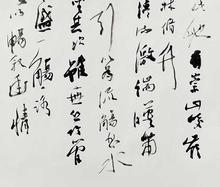 此地有崇山峻領
林脩竹
清流激湍暎帶
引以為流觴曲水
其次雖無絲竹管
盛一觴一詠
以暢敘幽情